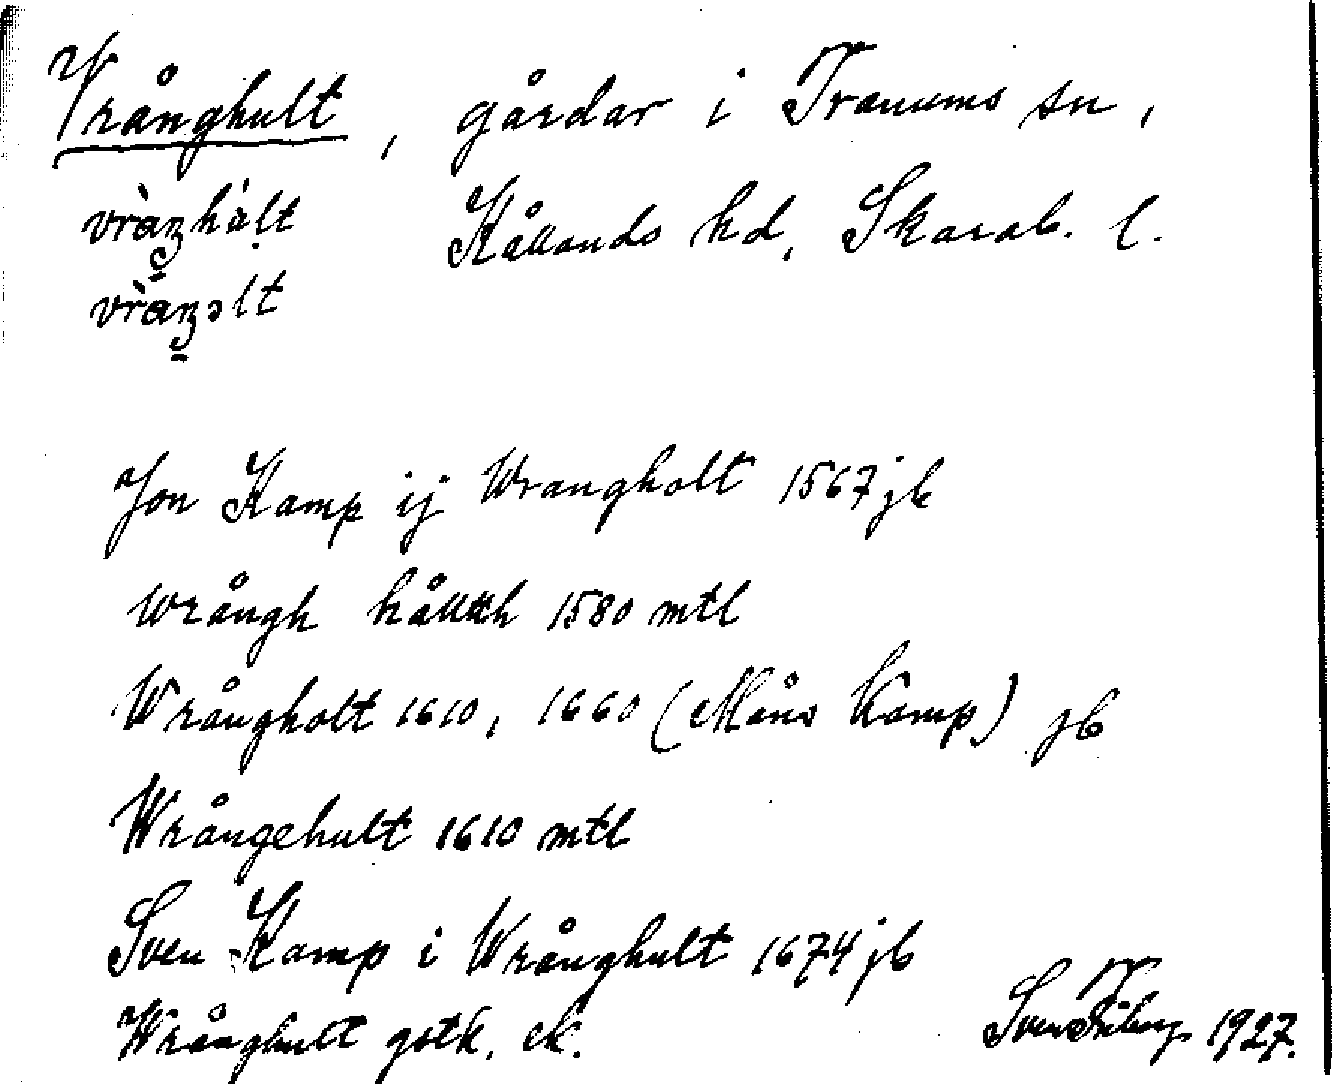 Vrånghult, gårdar i Tranums sn,
vràŋhàlt Kållands hd, Skarab. l.
vràŋəlt
Jon Kamp ij Wrangholt 1567 jb
Wrångh hållth 1580 mtl
Wrångholt 1610, 1660 (Måns Kamp) jb
Wrångehult 1610 mtl
Sven Kamp i Wrånghult 1674 jb
Wrånghult gstk. ek.
Sven 1927.